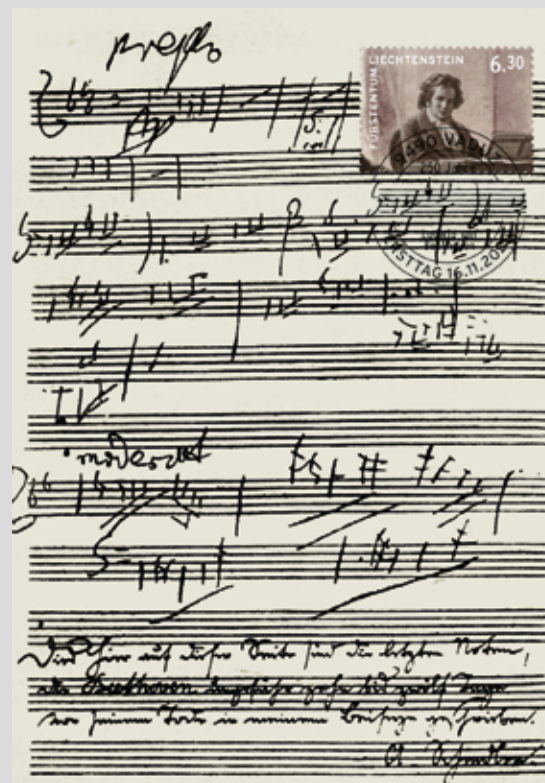 presto
FÜRSTENTUM LIECHTENSTEIN 6.30
9490 VADU
STTAG 16.11.20
moderat
hier auf dieser Seite sind die letzten Noten,
Beethoven ungefähr zehn bis zwölf Tage
vor seinem Tode in meinem Beiseyn geschrieben.
A. Schindler